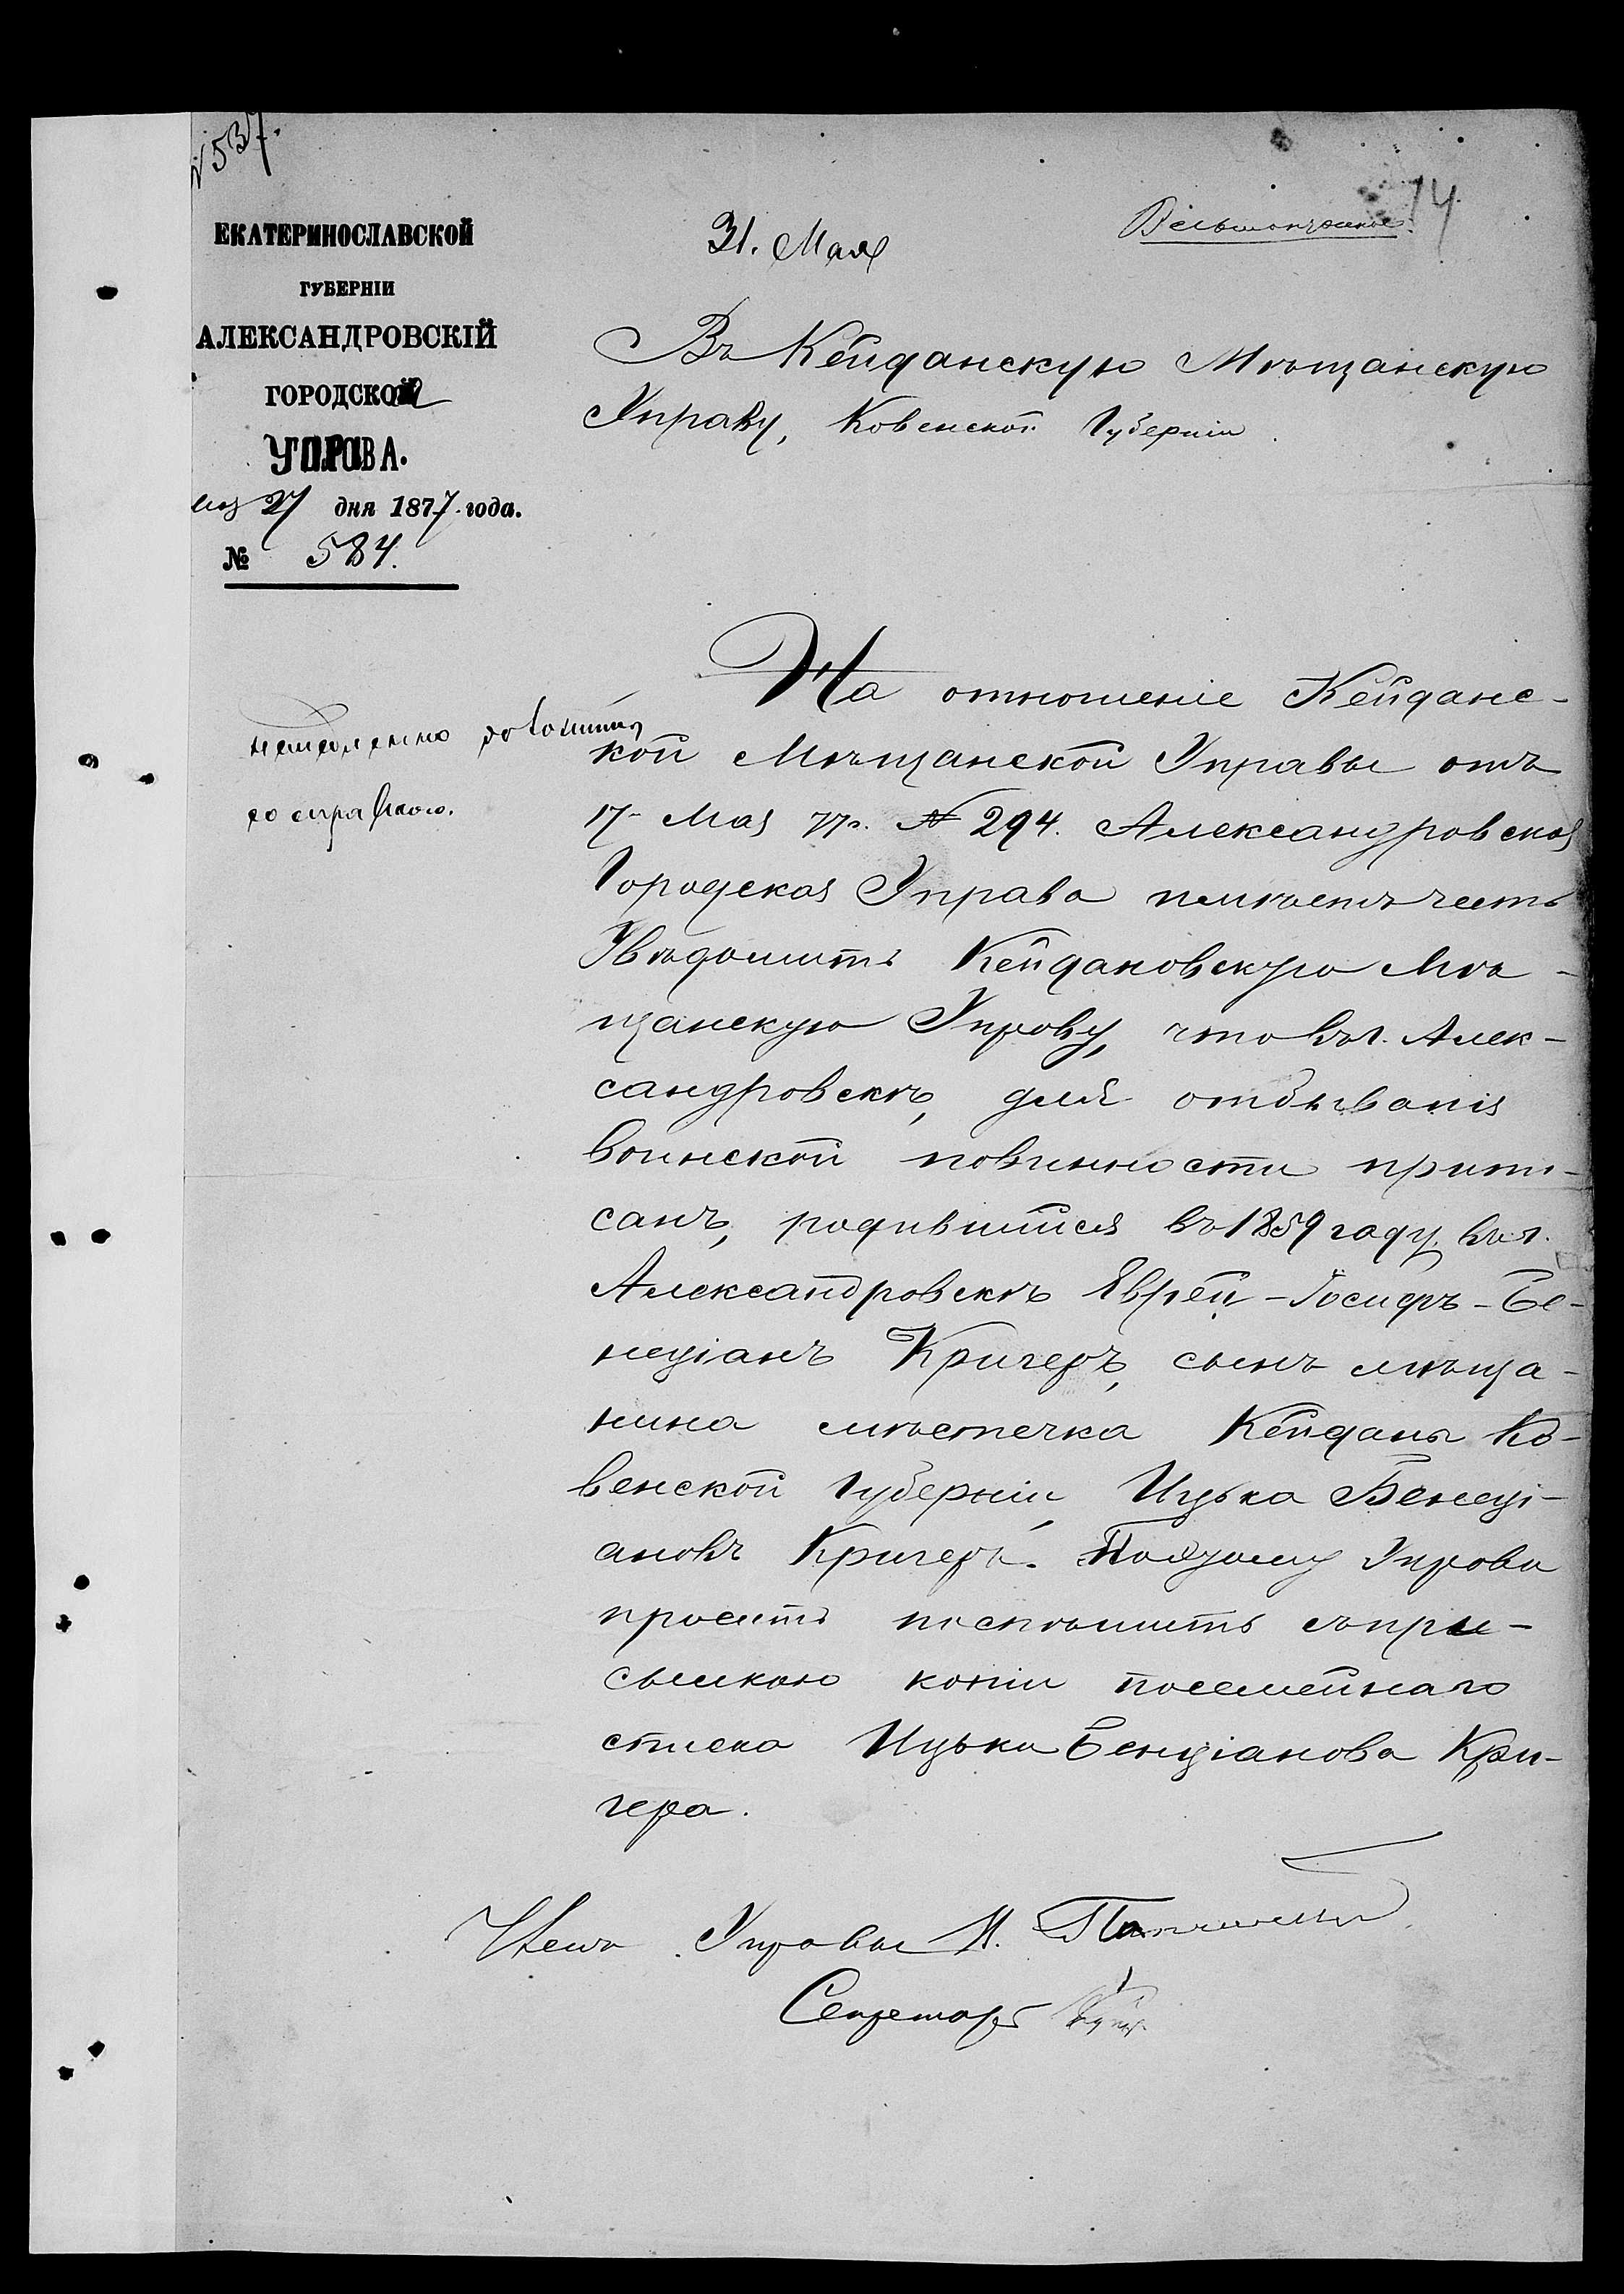 № 537.
14
ЕКАТЕРИНОСЛАВСКОЙ
ГУБЕРНІИ
АЛЕКСАНДРОВСКІЙ
ГОРОДСКОЙ
УПРАВА.
27 дня 1877 года.
№ 584.
31. Мая
Въ Кейданскую Мѣщанскую
Управу, Ковенской Губерніи.
со справкою.
На отношеніе Кейданс-
кой Мѣщанской Управы отъ
17 Мая 77 г. № 294. Александровская
Городская Управа имѣетъ честь
Увѣдомить Кейдановскую Мѣ-
щанскую Управу, что въ г. Алек-
сандровскѣ, для отбыванія
воинской повинности припи-
санъ, родившійся въ 1859 году въ г.
Александровскѣ Еврей-Іосифъ-Бе-
неціанъ Кригеръ, сынъ мѣща-
нина мѣстечка Кейданы Ко-
венской Губерніи, Ицька Бенеці-
ановъ Кригеръ. Поэтому Управа
проситъ поспѣшить съ при-
сылкою копіи посемейнаго
списка Ицька Бенціанова Кри-
гера.
Членъ Управы
Секретарь